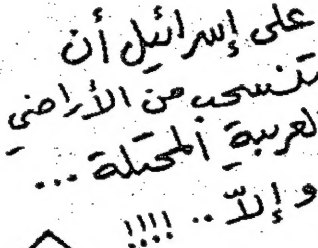 على إسرائيل أن
تنسحب من الأراضي
العربية المحتلة ...
وإلاّ .. !!!!